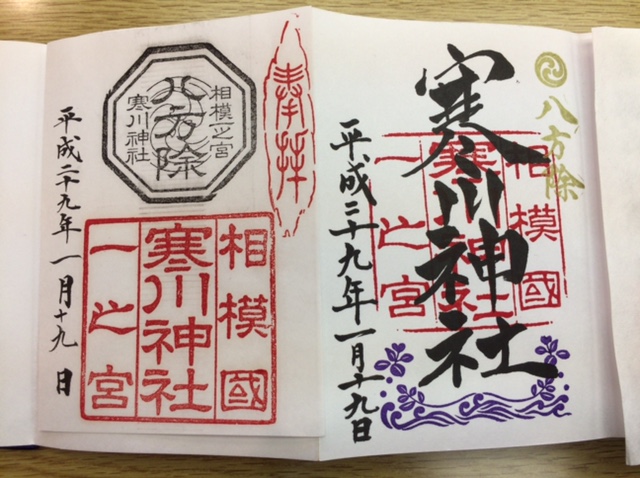 八方除
寒川神社
相模國
寒川神社
一之宮
平成二十九年一月十九日
奉拝
相模一之宮
八方除
寒川神社
相模國
寒川神社
一之宮
平成二十九年一月十九日